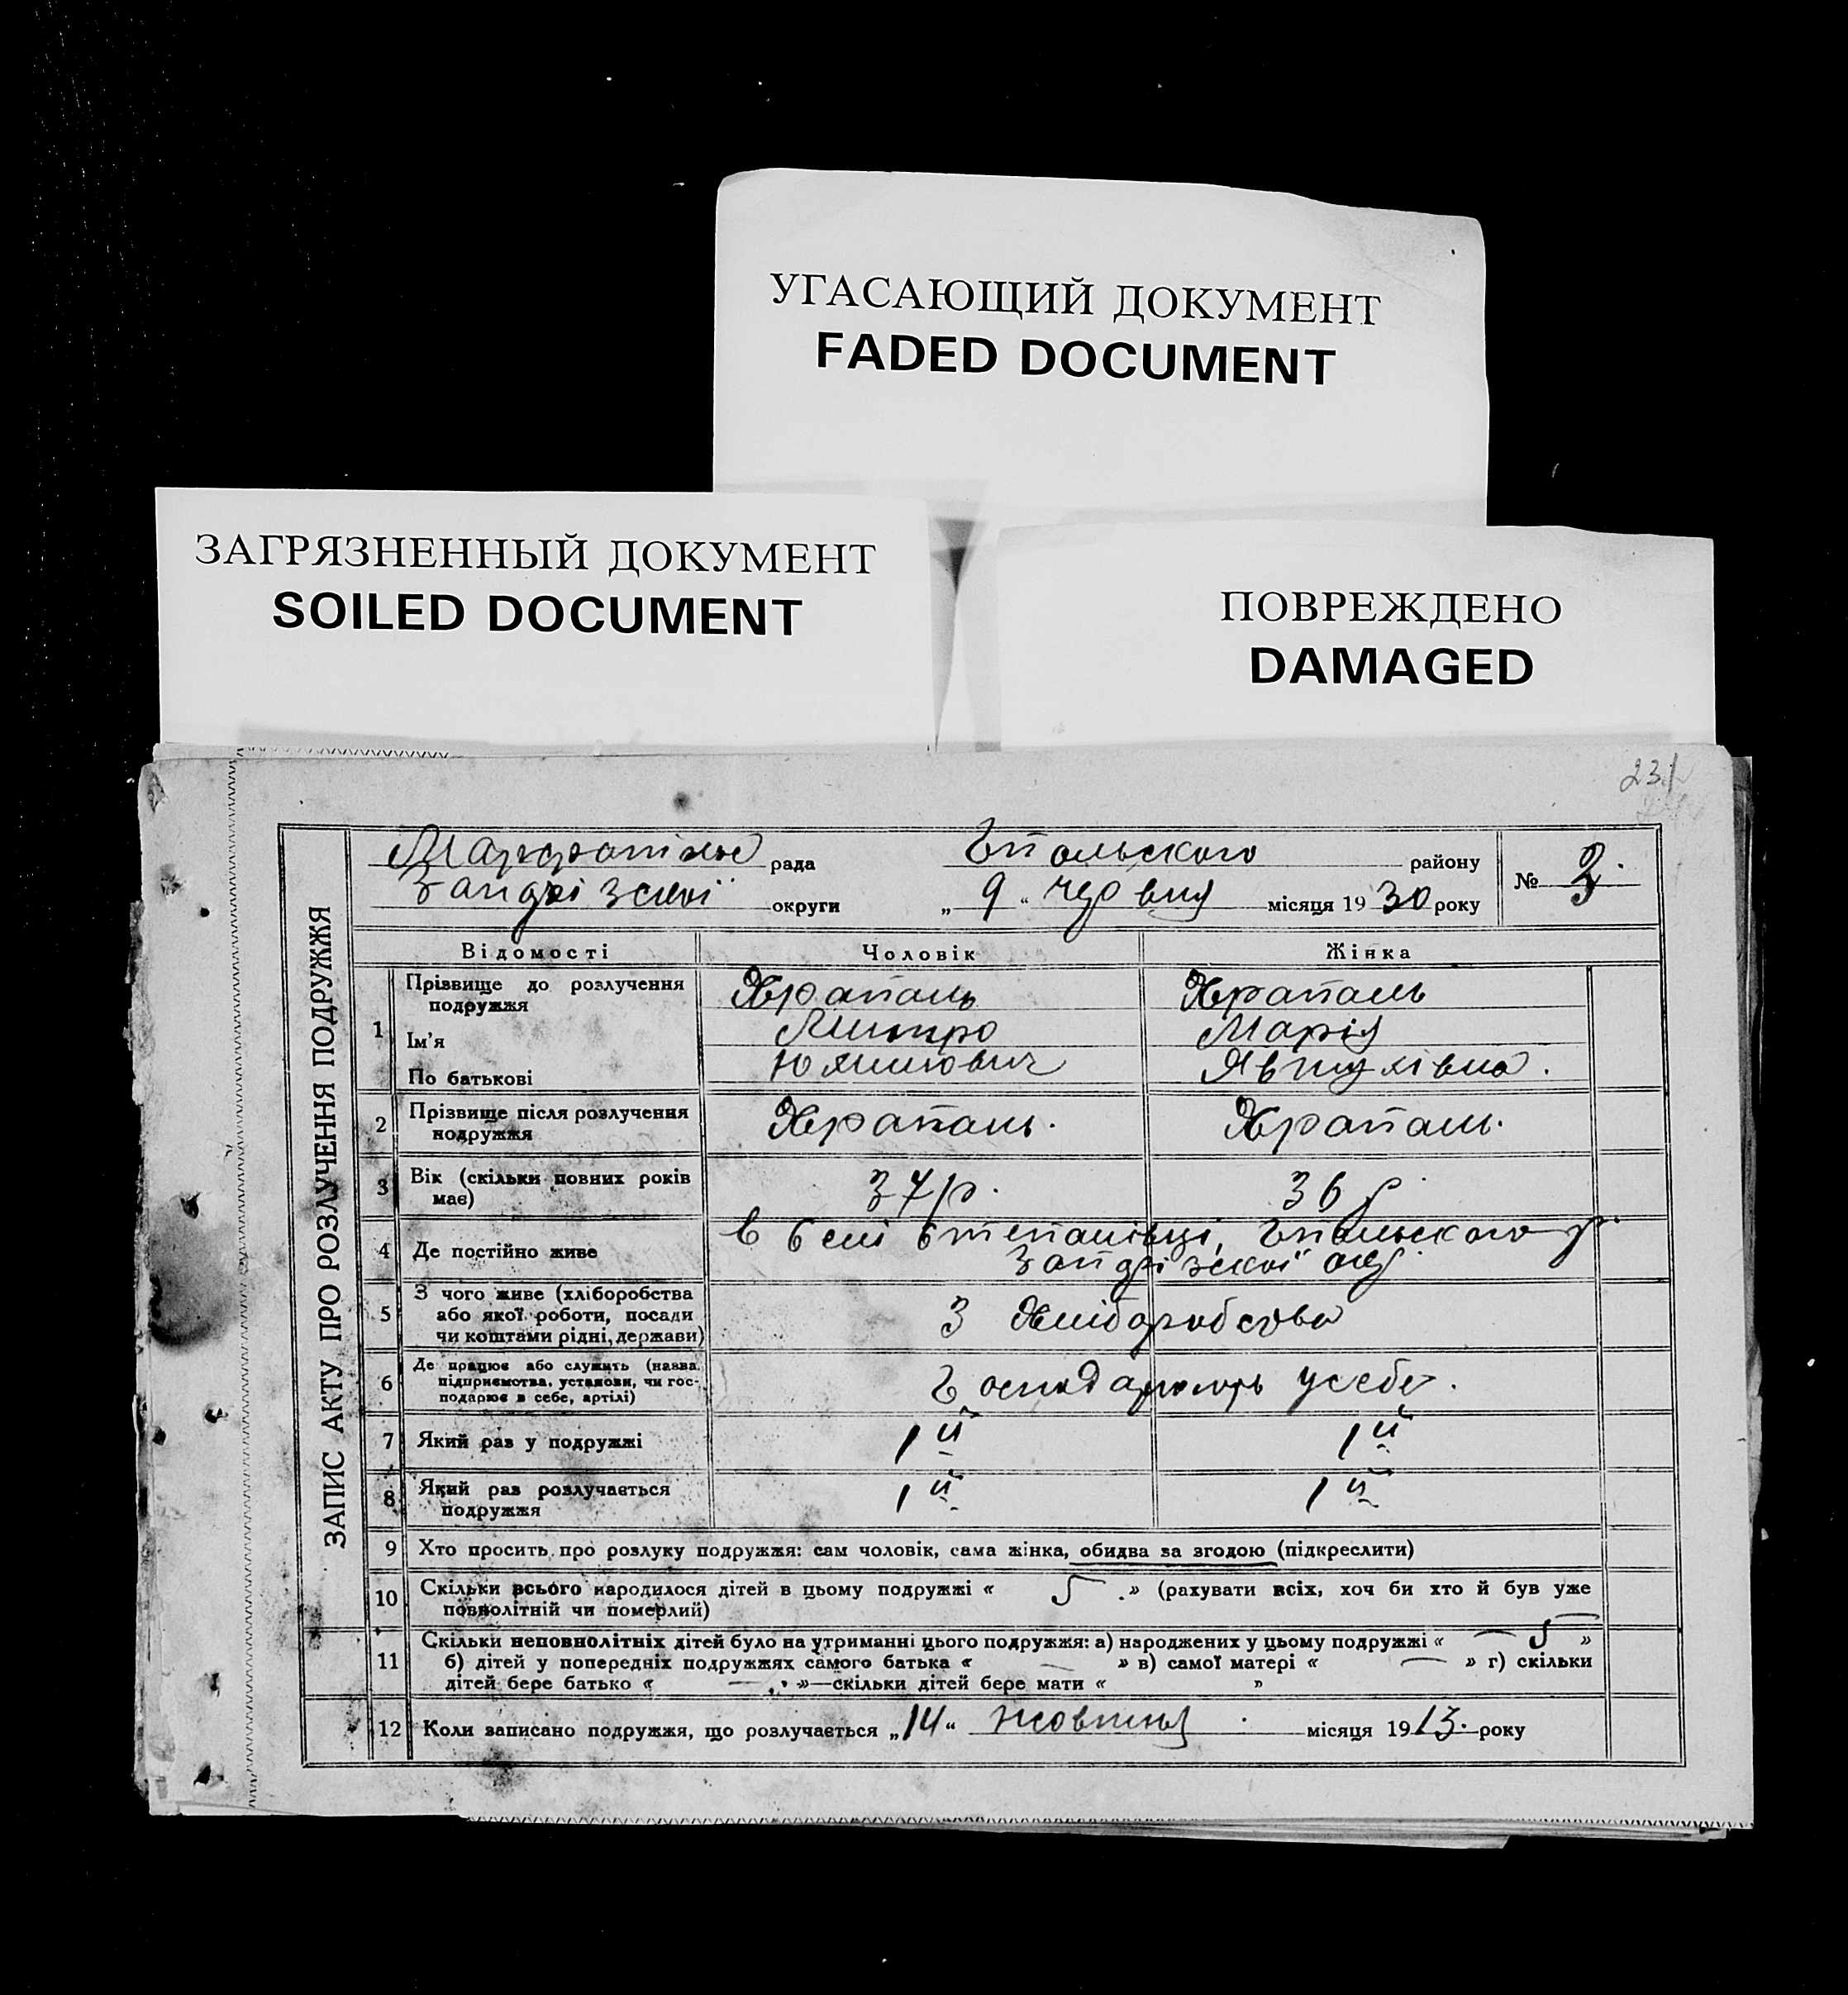 УГАСАЮЩИЙ ДОКУМЕНТ
FADED DOCUMENT
ЗАГРЯЗНЕННЫЙ ДОКУМЕНТ
SOILED DOCUMENT
ПОВРЕЖДЕНО
DAMAGED
231
ЗАПИС АКТУ ПРО РОЗЛУЧЕННЯ ПОДРУЖЖЯ
рада району
№ 2
округи „ 9 “ червня місяця 19 30 року
Відомості Чоловік Жінка
1 Прізвище до розлучення подружжя Храпаль Храпаль
Ім'я Митро Марія
По батькові Явтухівна.
2 Прізвище після розлучення подружжя Храпаль. Храпаль.
3 Вік (скільки повних років має) 37 р. 36 р.
4 Де постійно живе в селі Степанівці,
5 З чого живе (хліборобства або якої роботи, посади чи коштами рідні, держави) З Хліборобства
6 Де працює або служить (назва підприємства, установи, чи господарює в себе, артілі) Господарюють усебе.
7 Який раз у подружжі 1й 1й
8 Який раз розлучається подружжя 1й 1й
9 Хто просить про розлуку подружжя: сам чоловік, сама жінка, обидва за згодою (підкреслити)
10 Скільки всього народилося дітей в цьому подружжі « 5 » (рахувати всіх, хоч би хто й був уже
повнолітній чи померлий)
11 Скільки неповнолітніх дітей було на утриманні цього подружжя: а) народжених у цьому подружжі « 5 »
б) дітей у попередніх подружжях самого батька « — » в) самої матері « — » г) скільки
дітей бере батько « — » —скільки дітей бере мати « »
12 Коли записано подружжя, що розлучається „ 14 “ жовтня місяця 19 13. року